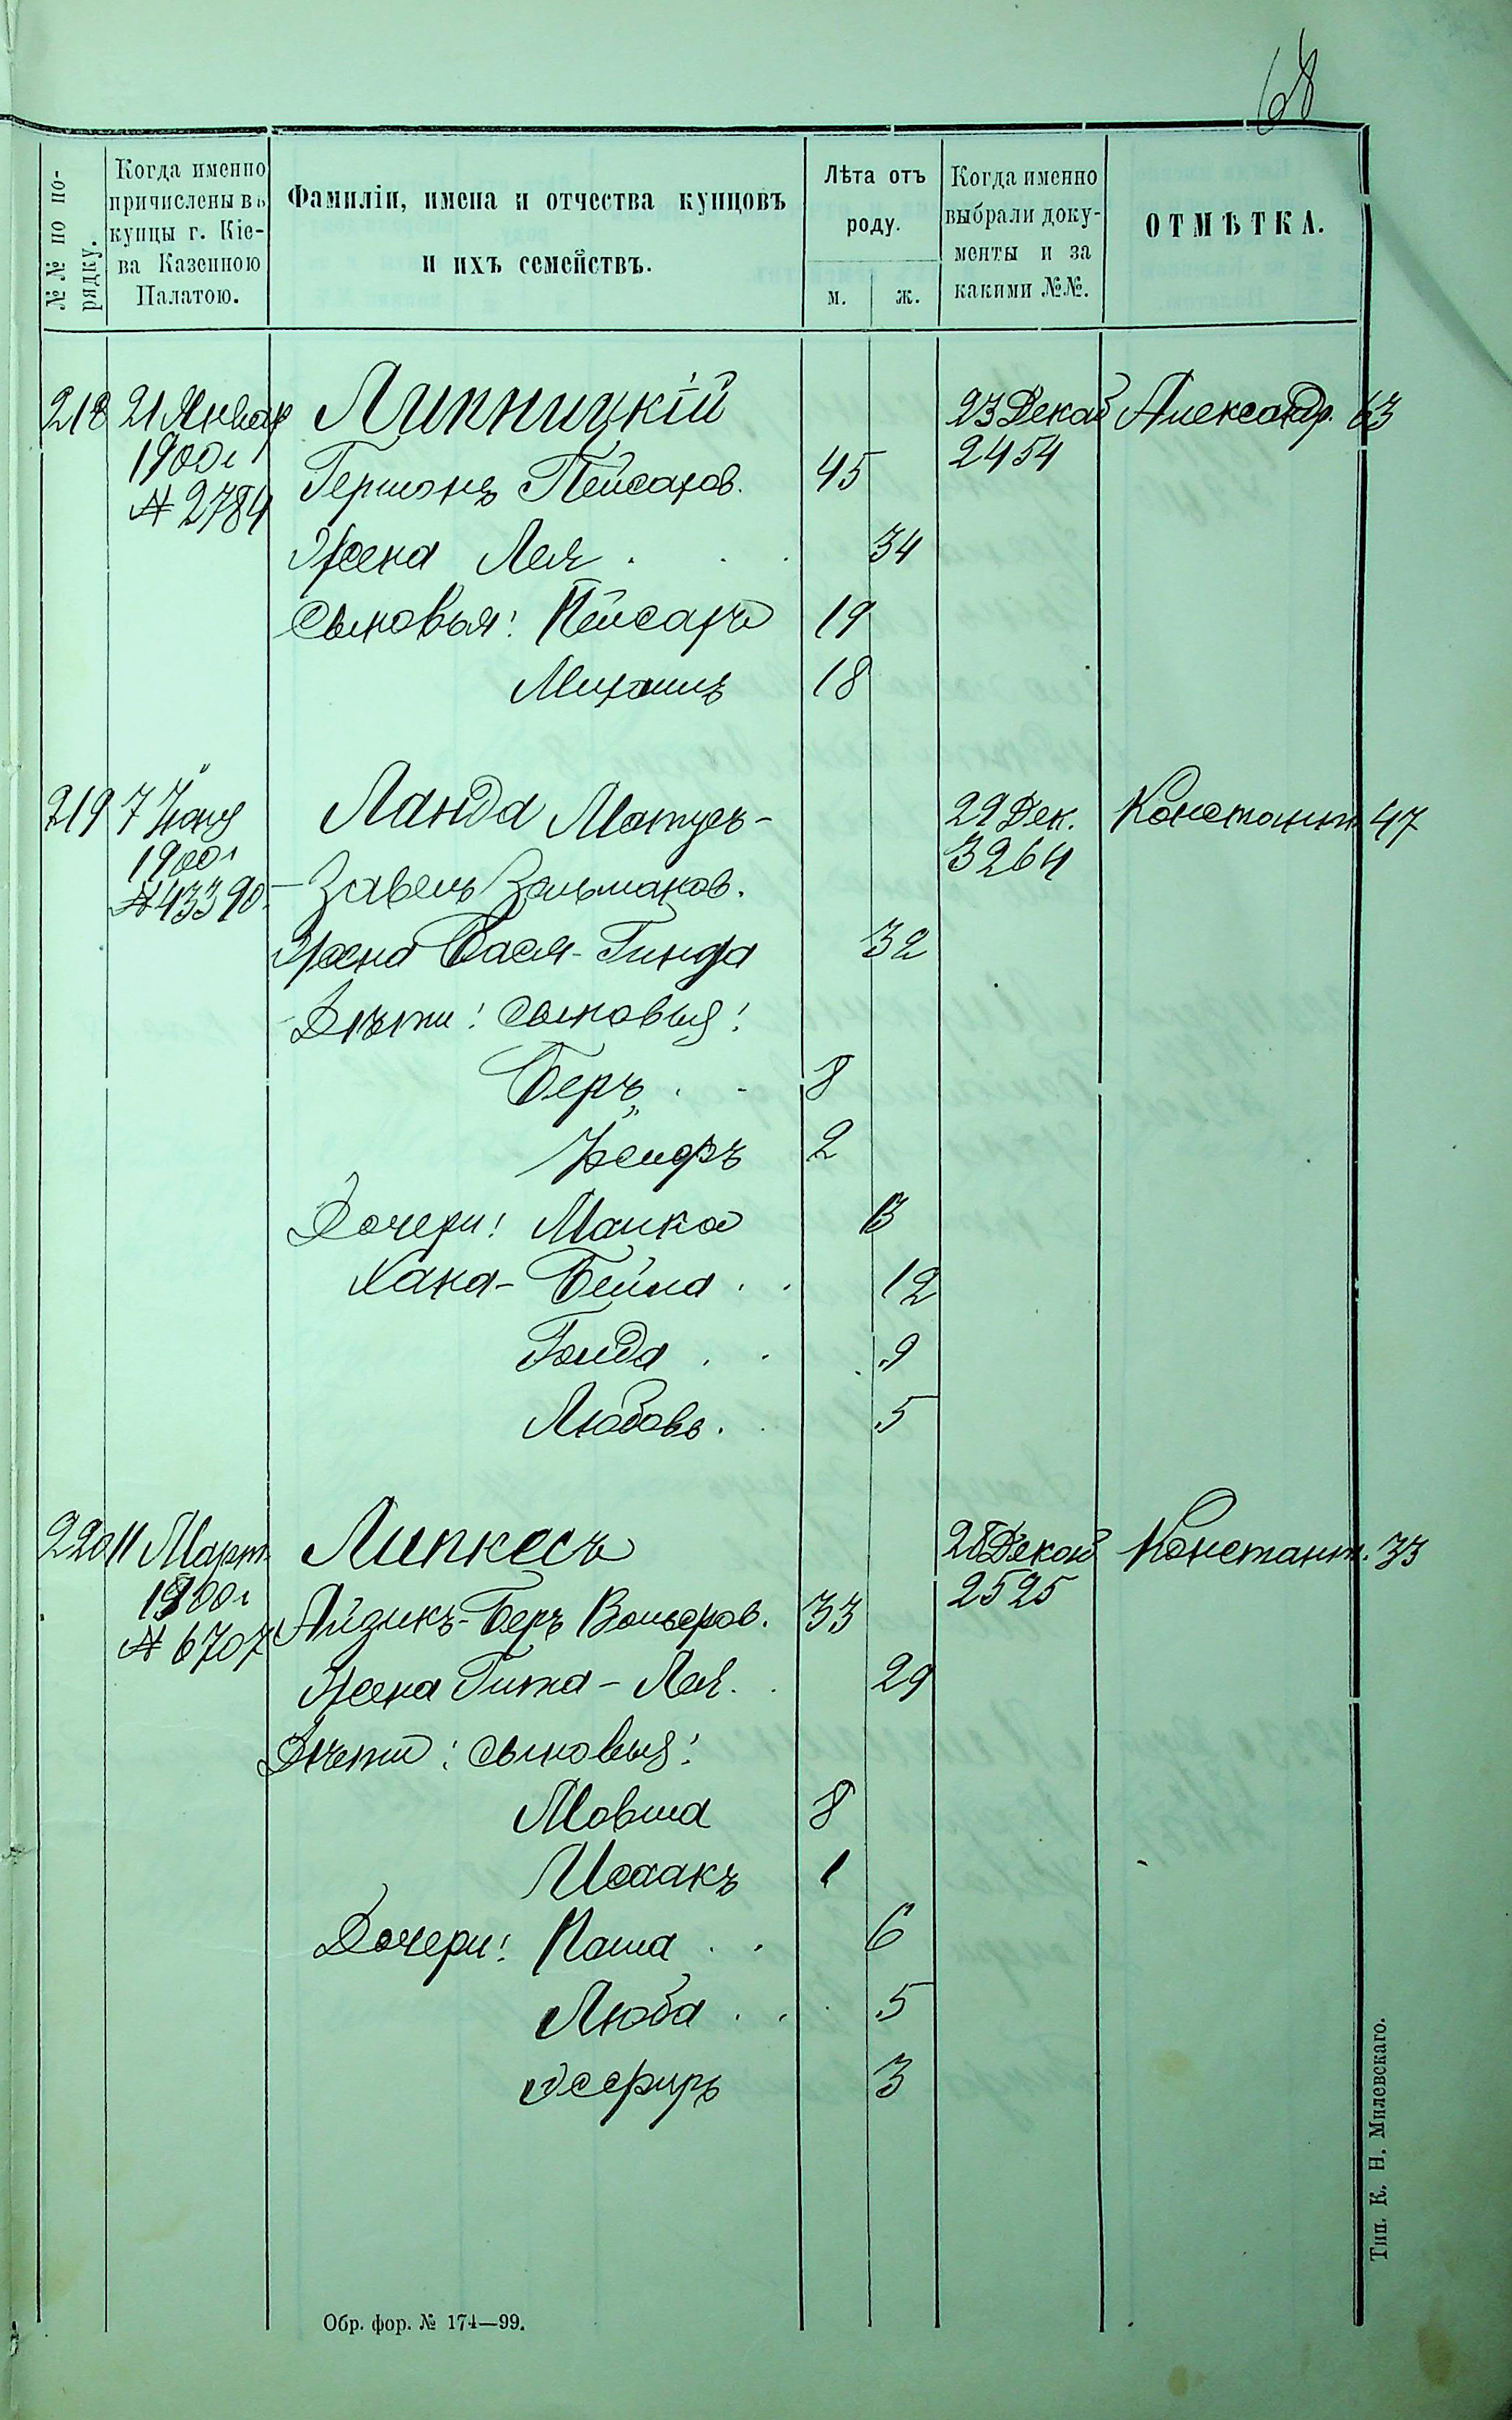 68
№№ по по-
рядку.
Когда именно
причислены въ
купцы г. Кіе-
ва Казенною
Палатою.
Фамиліи, имена и отчества купцовъ
и ихъ семействъ.
Лѣта отъ
роду.
м. ж.
Когда именно
выбрали доку-
менты и за
какими №№.
ОТМѢТКА.
218 21 Январ Липницкій 23 Декаб Александр. 63
1900 г 2454
№ 2784 Гершонъ Пейсахов. 45
Жена Лея 34
Сыновья: Пейсахъ 19
Михаилъ 18
219 7 Іюня Ланда Матусъ- 29 Дек. Константин 47
1900 г 3264
№ 43390 Завель Зальманов.
Жена Бася-Гинда 32
Дѣти: сыновья:
Беръ 8
Іосифъ 2
Дочери: Малка 13
Хана-Бейла 12
Голда 9
Любовь. 5
220 11 Март. Липкесъ 28 Декаб Константин. 33
1900 г 2525
№ 6707 Айзикъ-Беръ Вольфов. 33
Жена Гитла-Лея. 29
Дѣти: сыновья:
Мовша 8
Исаакъ 1
Дочери: Паша 6
Люба 5
Эсфирь 3
Обр. фор. № 174—99.
Тип. К. Н. Милевскаго.